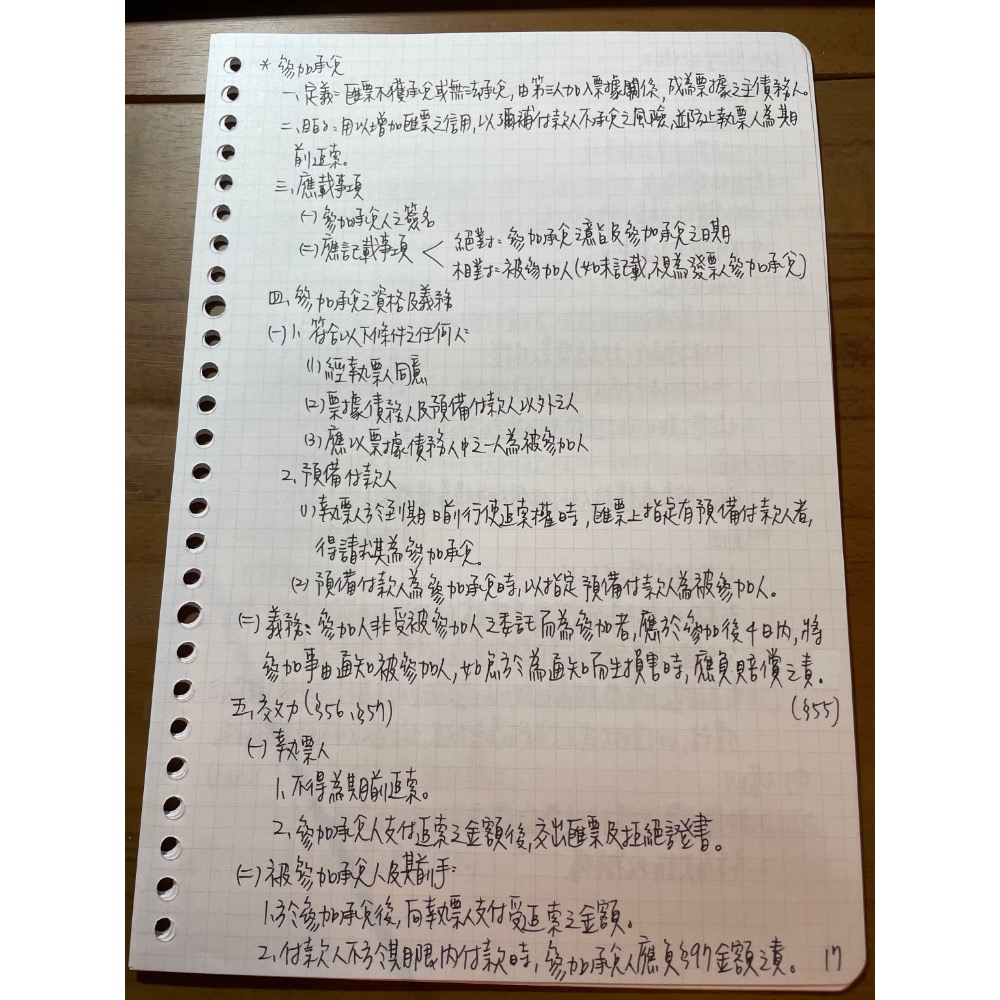 * 參加承兌
一、定義：匯票不獲承兌或無法承兌，由第三人加入票據關係後，成為票據之主債務人。
二、目的：用以增加匯票之信用，以彌補付款人不承兌之風險，並防止執票人為期
前追索。
三、應載事項
(一)參加承兌人之簽名
(二)應記載事項 < 絕對：參加承兌之意旨及參加承兌之日期
相對：被參加人(如未記載，視為發票人參加承兌)
四、參加承兌之資格及義務
(一)1、符合以下條件之任何人：
(1)經執票人同意
(2)票據債務人及預備付款人以外之人
(3)應以票據債務人中之一人為被參加人
2、預備付款人
(1)執票人於到期日前行使追索權時，匯票上指定有預備付款人者，
得請求其為參加承兌。
(2)預備付款人為參加承兌時，以指定預備付款人為被參加人。
(二)義務：參加人非受被參加人之委託而為參加者，應於參加後4日內，將
參加事由通知被參加人，如怠於為通知而生損害時，應負賠償之責。
(§55)
五、效力(§56、§57)
(一)執票人
1、不得為期前追索。
2、參加承兌人支付追索之金額後，交出匯票及拒絕證書。
(二)被參加承兌人及其前手：
1、於參加承兌後，向執票人支付受追索之金額。
2、付款人不於期限內付款時，參加承兌人應負§97金額之責。
17